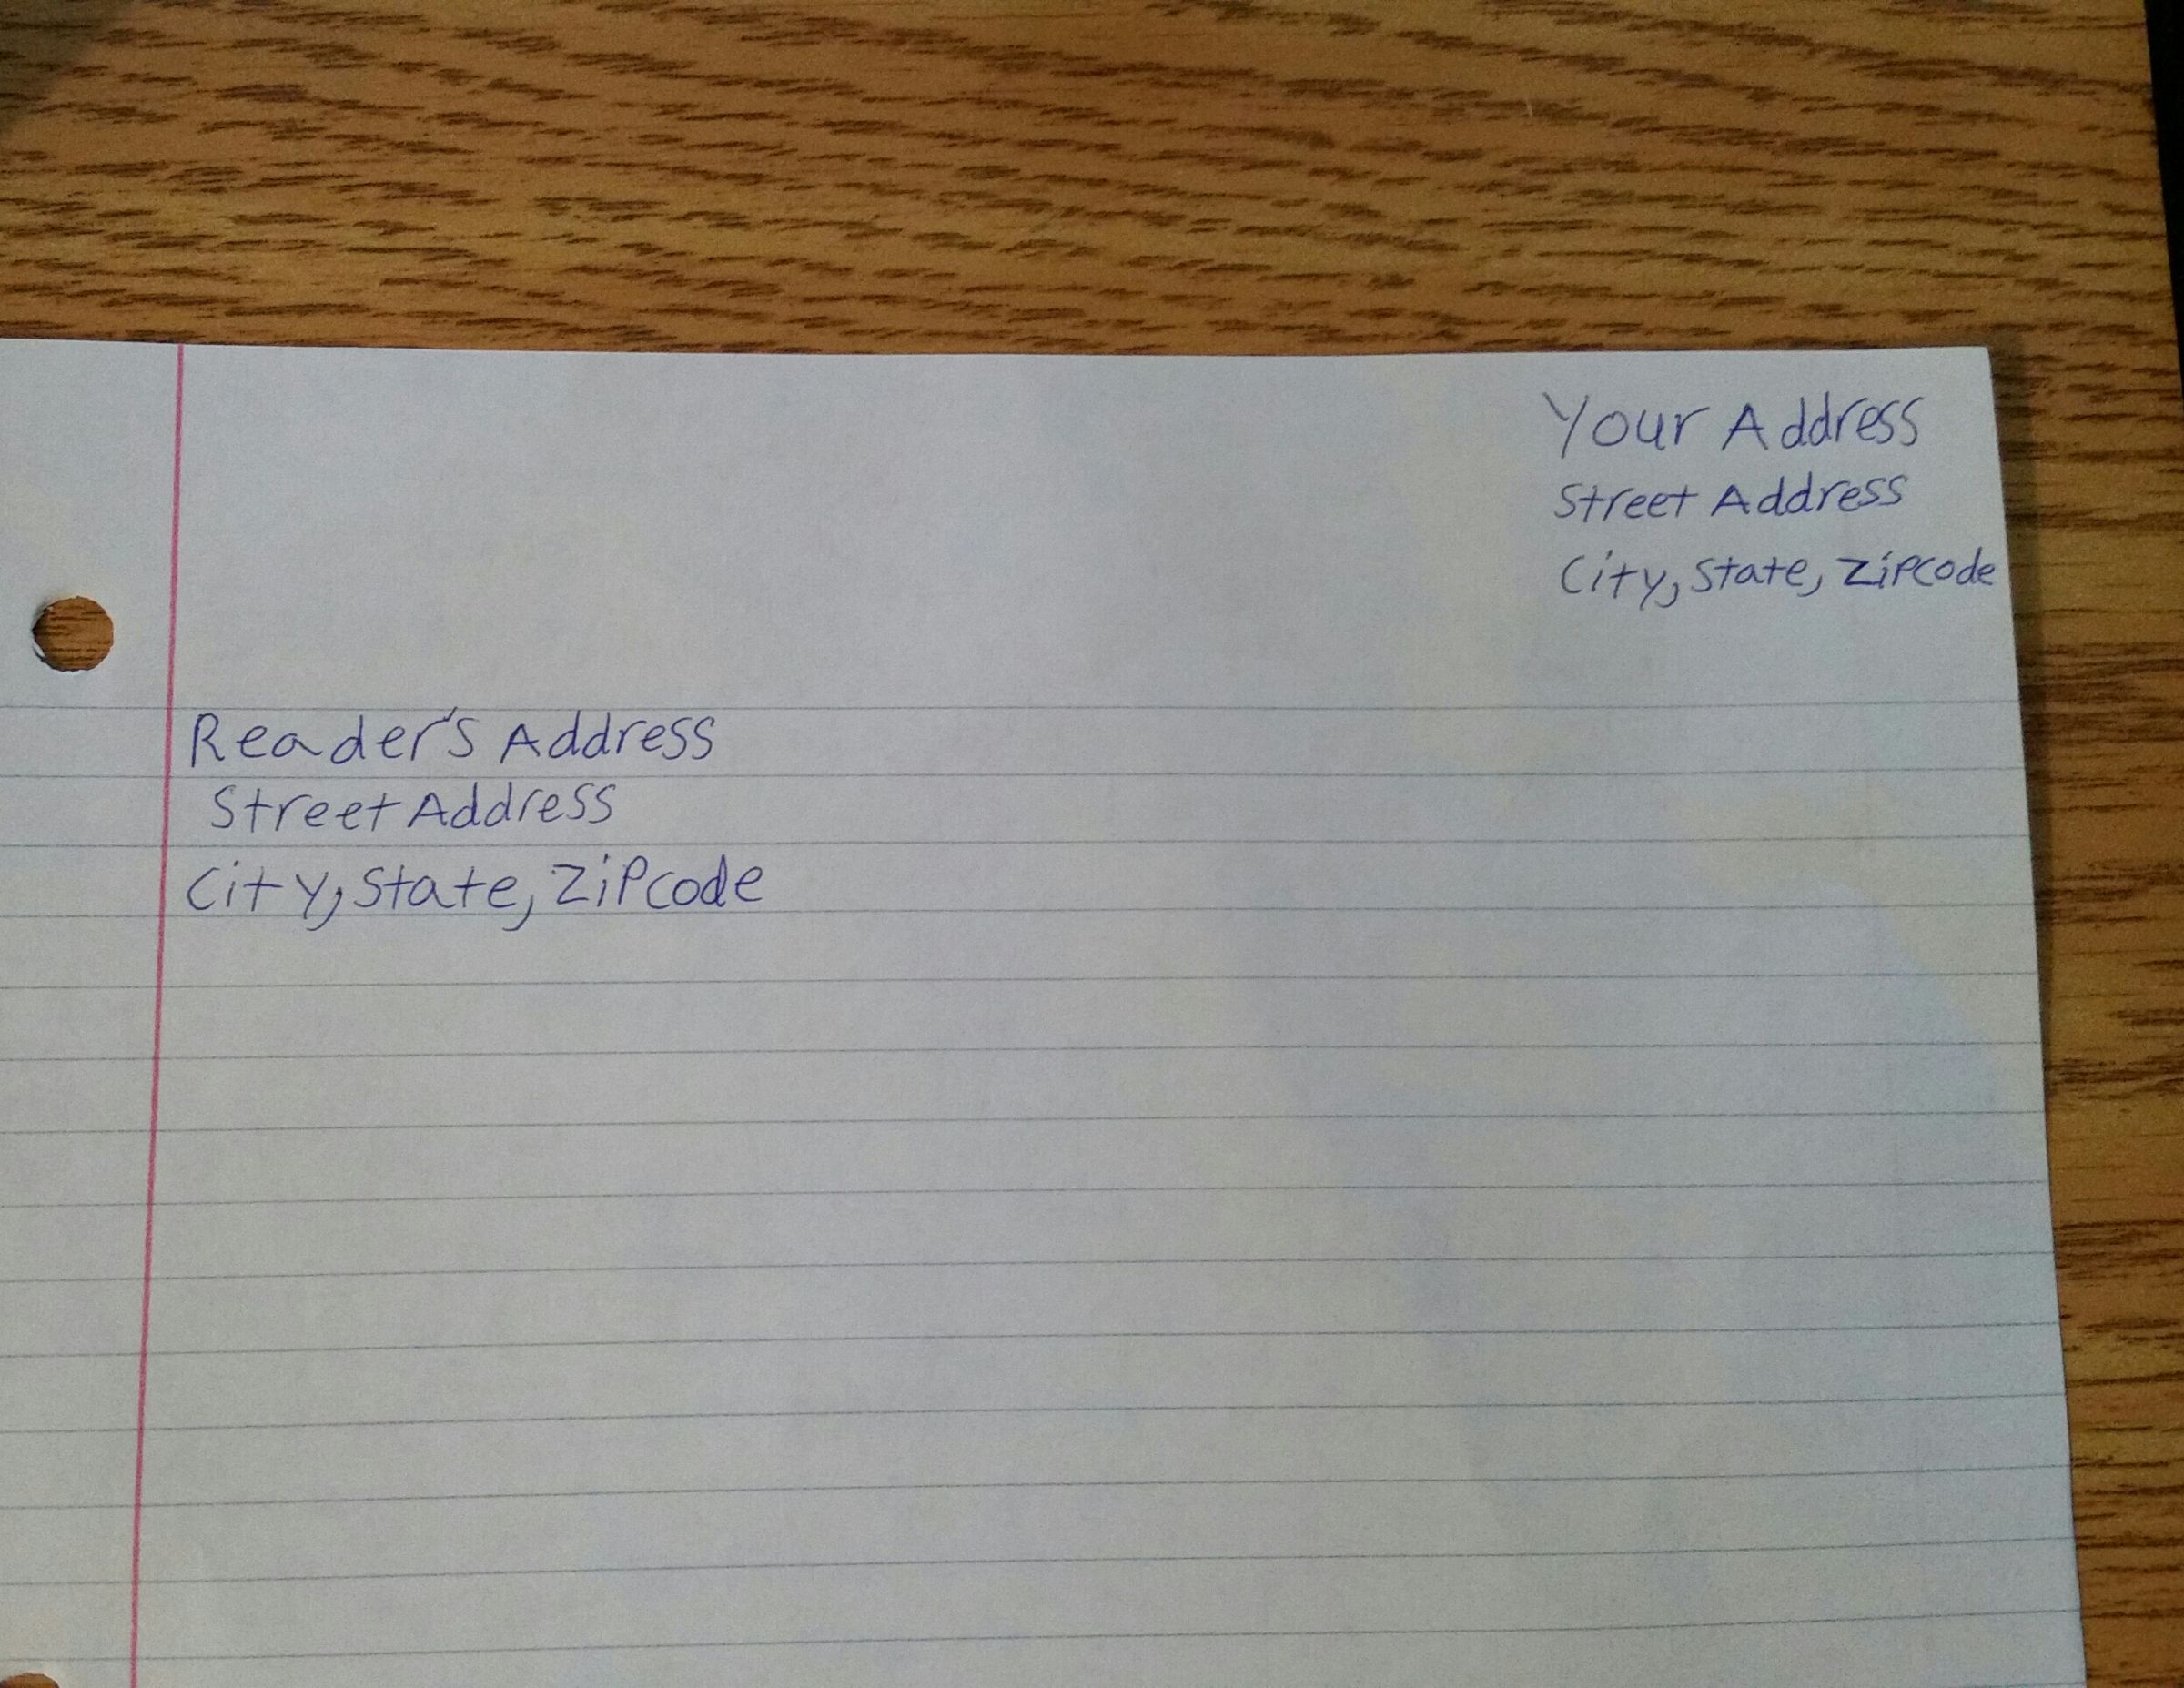 Your Address
Street Address
City, State, Zipcode
Reader's Address
Street Address
City, State, Zipcode